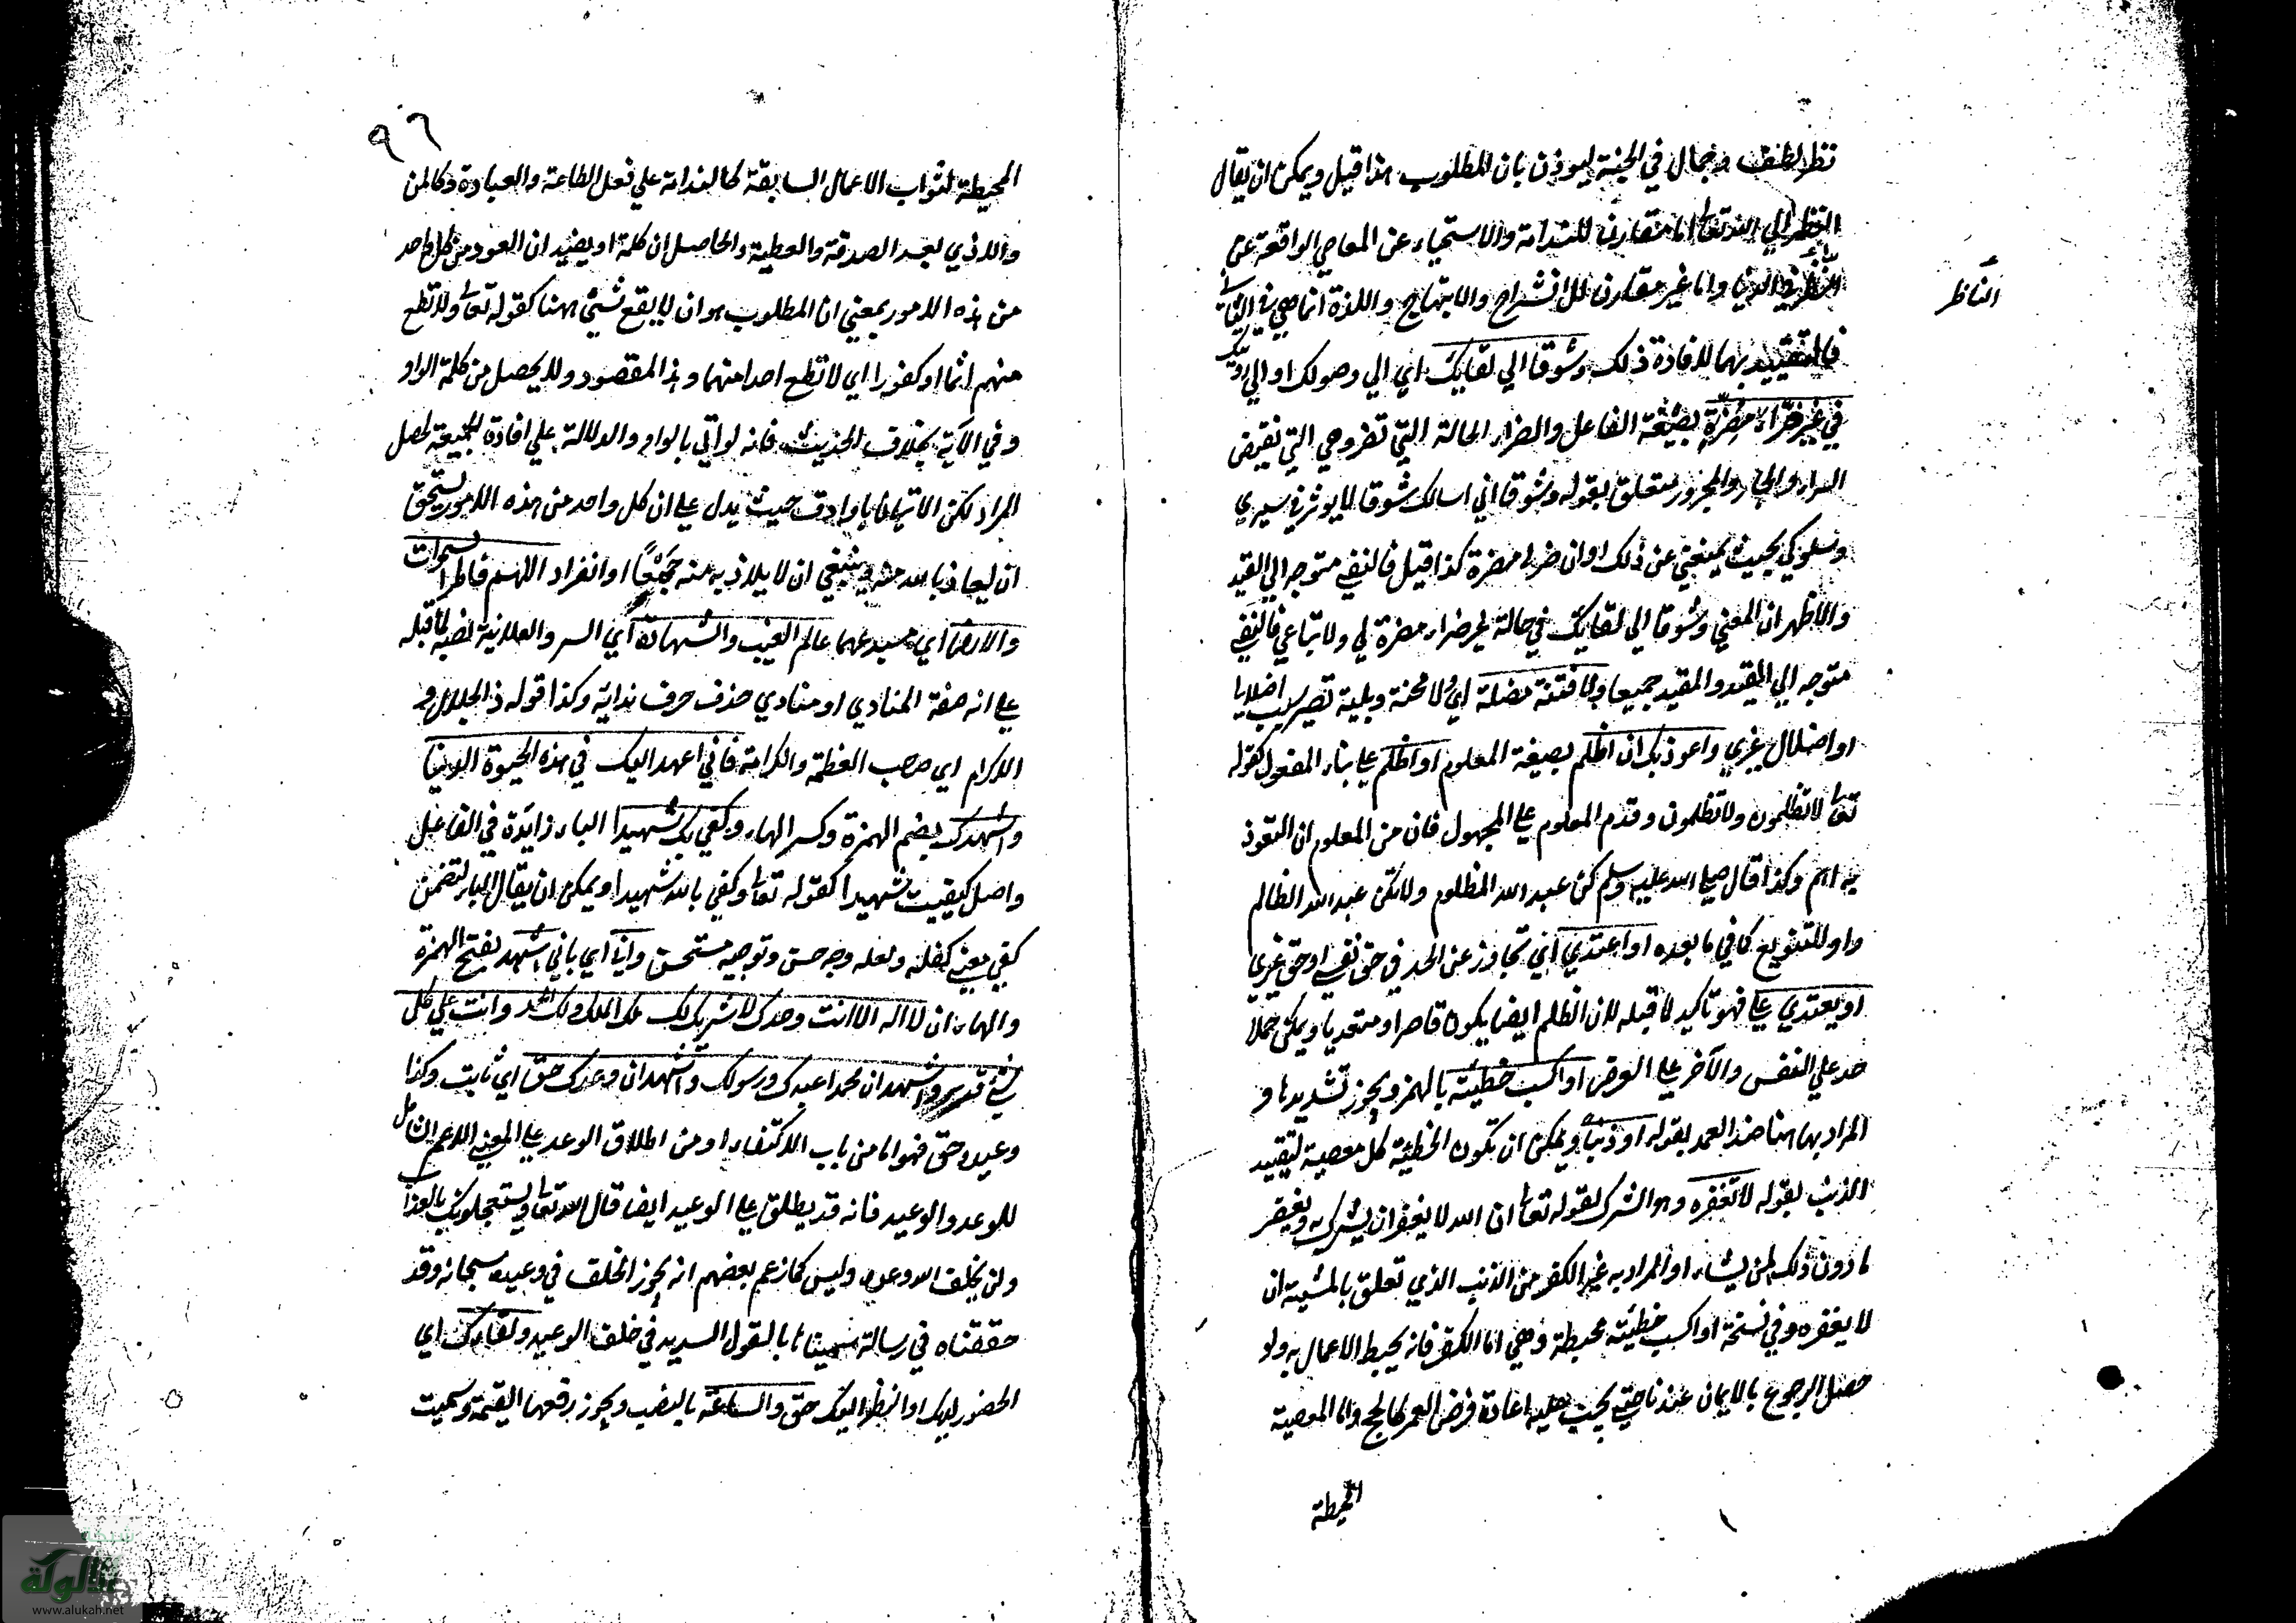 نظر لطف وجمال في الجنة ليوذن بان المطلوب هذا قيل ويمكن ان يقال
النظر الي الله تعالى اما مقارن للندامة والاستحياء عن المعاصي الواقعة عن
الناظر
في الدنيا واما غير مقارن للانشراح والابتهاج واللذة انما هي في الثاني
فالتقييد بهما لافادة ذلك وشوقا الي لقايك اي الي وصولك او الي رويتك
في غير ضراء مضرة بصيغة الفاعل والضراء الحالة التي تضر وهي التي نقيض
السراء والجار والمجرور متعلق بقوله وشوقا اني اسالك شوقا لا يوثر في سيري
وسلوكي بحيث يمنعني عن ذلك او ان ضراء مضرة كذا قيل فالنفي متوجه الي القيد
والاظهر ان المعني وشوقا الي لقايك في حالة غير ضراء مضرة لي ولاتباعي فالنفي
متوجه الي القيد والمقيد جميعا ولا فتنة مضلة اي ولا محنة وبلية تصير سبب اضلالنا
او اضلال غيري واعوذ بك ان اظلم بصيغة المعلوم او اظلم علي بناء المفعول كقوله
تعالى لا تظلمون ولا تظلمون وقدم المعلوم علي المجهول فان من المعلوم ان التعوذ
به اهم وكذا قال صلي الله عليه وسلم كن عبد الله المظلوم ولا تكن عبد الله الظالم
واو للتنويع كما في ما بعده او اعتدي اي تجاوز عن الحد في حق نفسي او حق غيري
او يعتدي علي فهو تاكيد لما قبله لان الظلم ايضا يكون قاصرا ومتعديا ويمكن حملا
حد علي النفس والآخر علي العرض او اكسب خطيئة بالهمز ويجوز تشديدها و
المراد بها هنا ضد العمد بقوله او ذنبا ويمكن ان تكون الخطيئة كل معصية لتقييد
الذنب بقوله لا تغفره وهو الشرك لقوله تعالى ان الله لا يغفر ان يشرك به ويغفر
ما دون ذلك لمن يشاء او المراد به غير الكفر من الذنب الذي تعلق بالمشيته ان
لا يغفره وفي نسخة او اكسب خطيئة محيطة وهي اما الكفر فانه يحبط الاعمال به ولو
حصل الرجوع بالايمان عندنا حتي يجب عليه اعادة فرض العمر كالحج واما المعصية
المحيطة
٩٦
المحيطة لثواب الاعمال السابقة كالندامة علي فعل الطاعة والعبادة وكالمن
والاذي بعد الصدقة والعطية والحاصل ان كلمة او يفيد ان العوذ من كل واحد
من هذه الامور بمعني ان المطلوب هو ان لا يقع شيئ ههنا كقوله تعالى ولا تطع
منهم اثما او كفورا اي لا تطع احدا منهما وهذا المقصود ولا يحصل من كلمة الواو
وفي الآية بخلاف الحديث فانه لو اتي بالواو والدلالة علي افادة الجمعية لحصل
المراد لكن الاتيان باو ادق حيث يدل علي ان كل واحد من هذه الامور يستحق
ان يعاذ بالله منه وينبغي ان لا يلاذ به منه جمعا او انفراد اللهم فاطر السموات
والارض اي مبدعهما عالم الغيب والشهادة اي السر والعلانية نصبه لما قبله
علي انه صفة المنادي او منادي حذف حرف ندايه وكذا قوله ذا الجلال و
الاكرام اي صاحب العظمة والكرامة فاني اعهد اليك في هذه الحيوة الدنيا
واشهدك بضم الهمزة وكسر الهاء وكفي بك شهيدا الباء زايدة في الفاعل
واصل كفيت شهيدا كقوله تعالى وكفي بالله شهيدا ويمكن ان يقال الباء لتضمن
كفي معني كفله ولعله وجه حسن وتوجيه مستحسن واني اي باني اشهد بفتح الهمزة
والهاء ان لا اله الا انت وحدك لا شريك لك لك الملك ولك الحمد وانت علي كل
شيئ قدير واشهد ان محمدا عبدك ورسولك واشهد ان وعدك حق اي ثابت وكذا
وعيده حق فهو اما من باب الاكتفاء او من اطلاق الوعد علي المعني الاعم الشامل
للوعد والوعيد فانه قد يطلق علي الوعيد ايضا قال الله تعالى ويستعجلونك بالعذاب
ولن يخلف الله وعده وليس كما زعم بعضهم انه يجوز الخلف في وعيده سبحانه وقد
حققناه في رسالة سميناها بالقول السديد في خلف الوعيد ولقاءك اي
الحضور لديك او النظر اليك حق والساعة بالنصب ويجوز رفعها القيمة وسميت
www.alukah.net